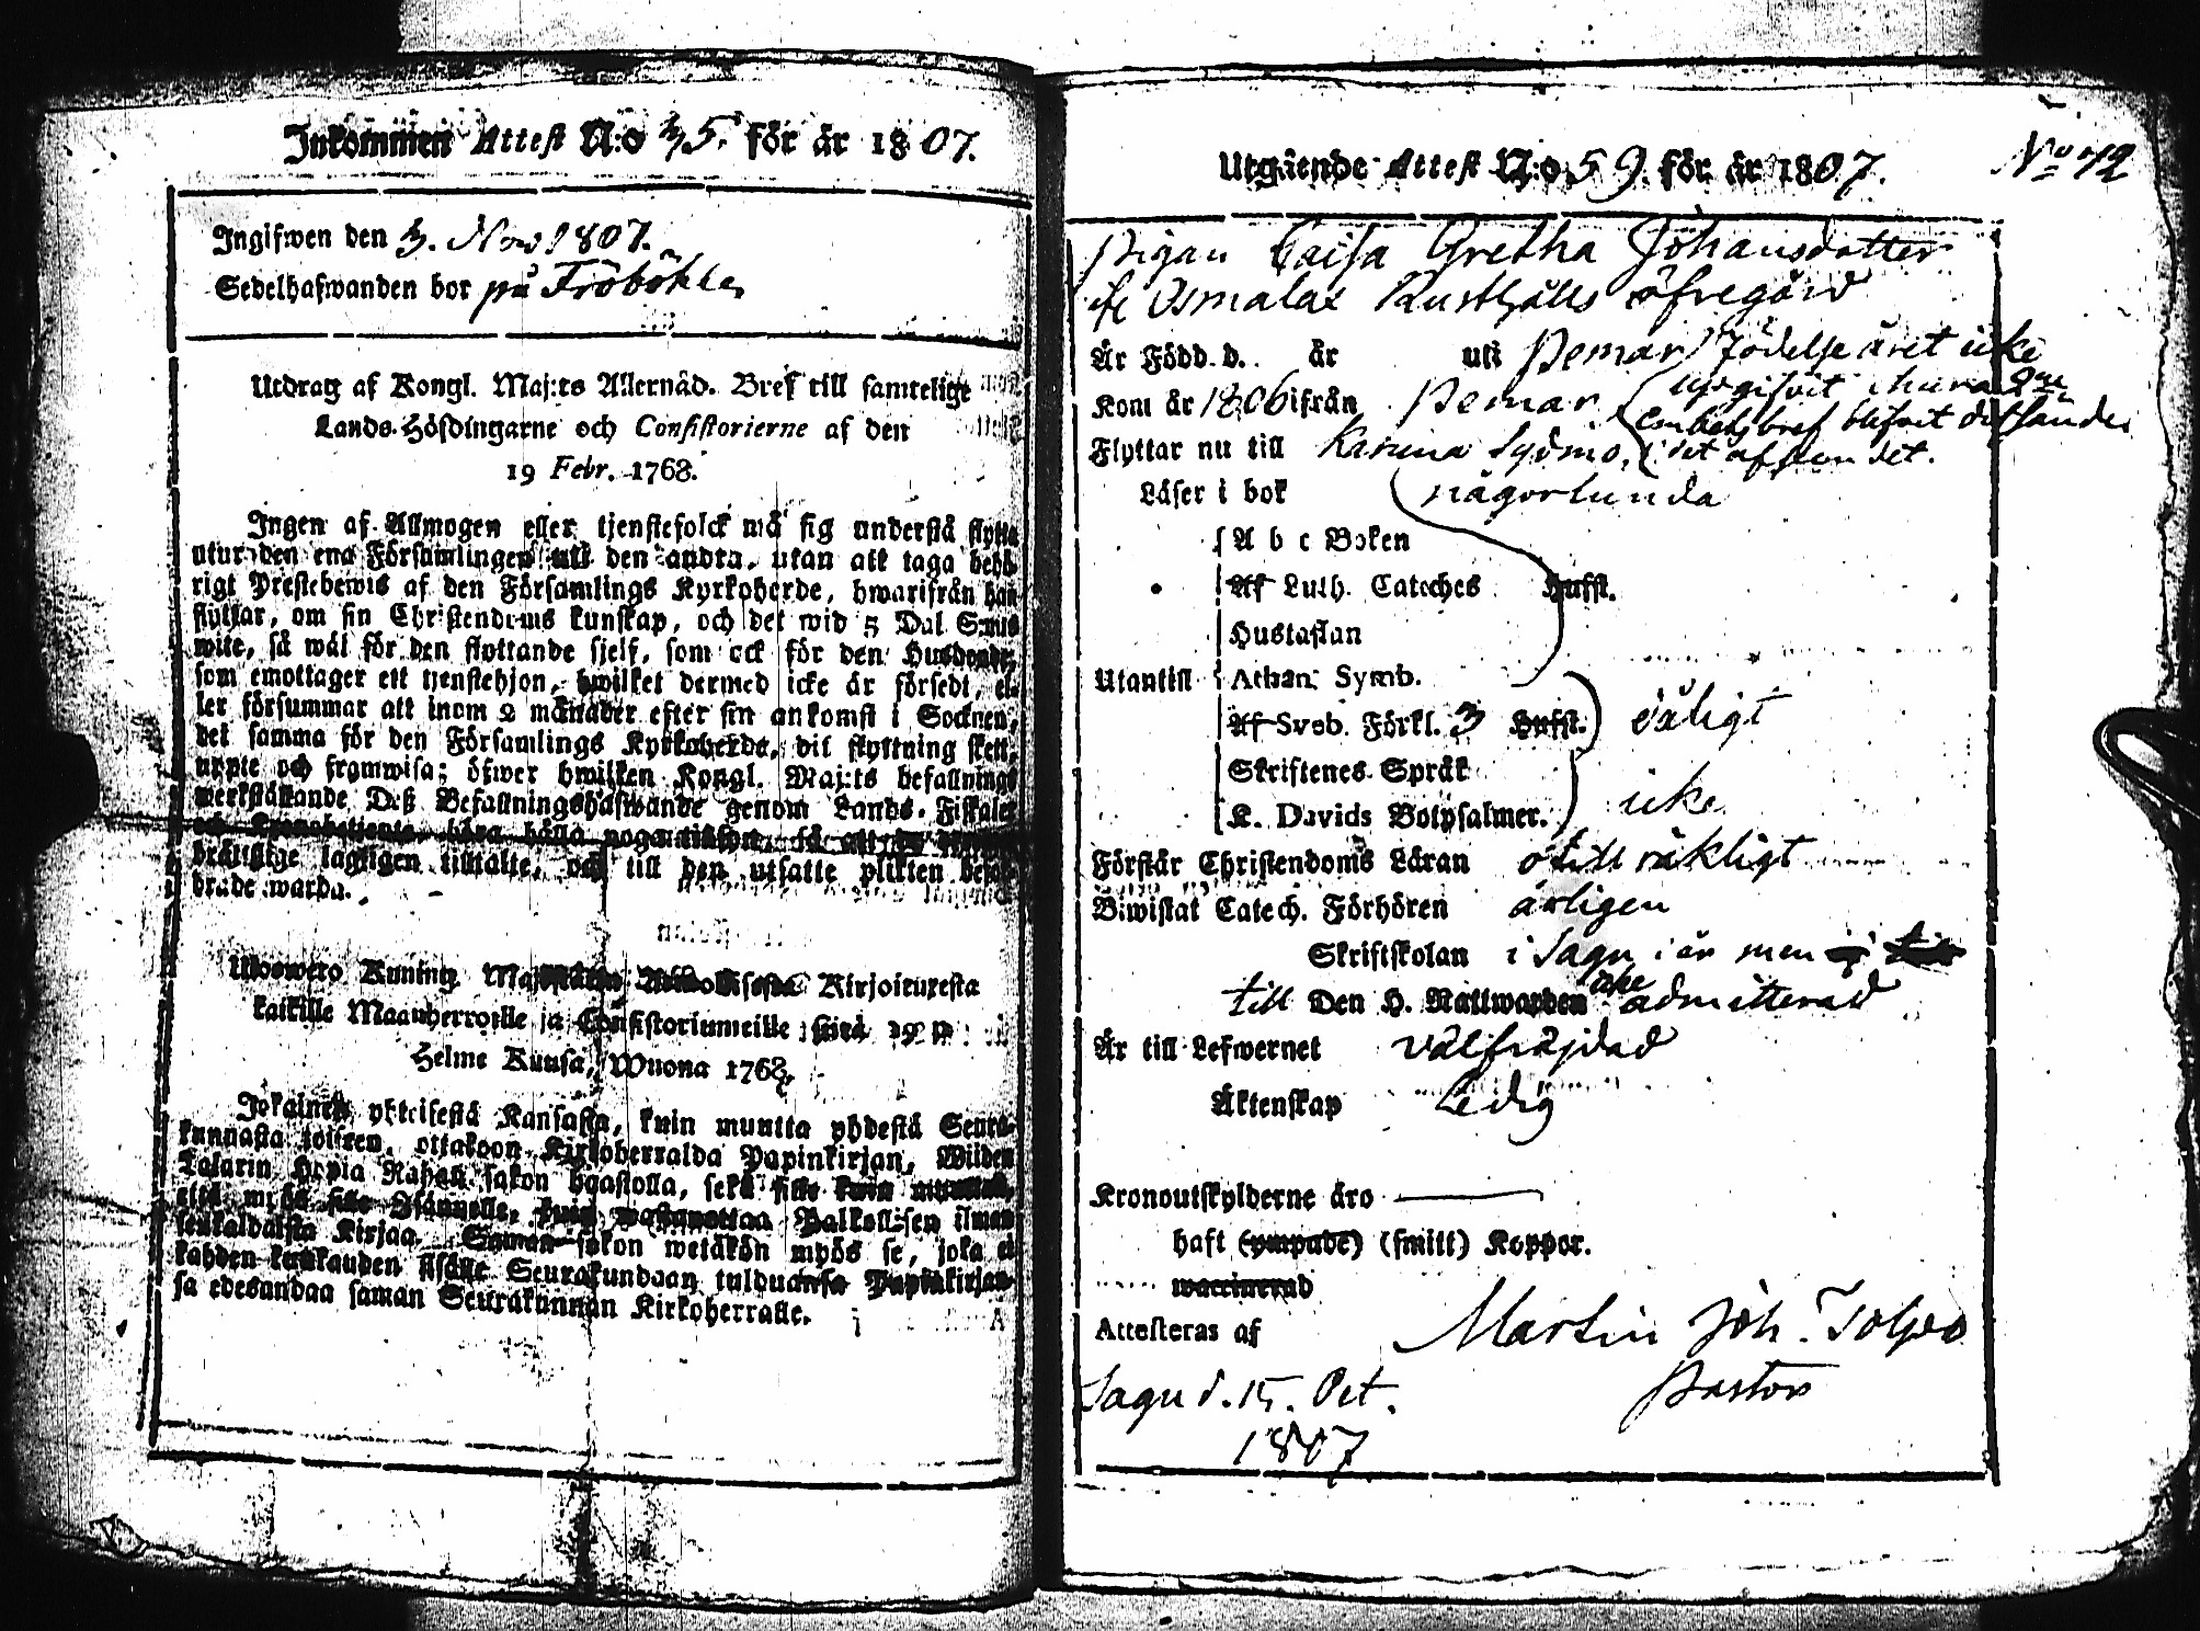 Inkommen Attest N:o 35. för år 1807.
Ingifwen den 3. Nov 1807.
Sedelhafwanden bor på Fröböhle
Utdrag af Kongl. Maj:ts Allernåd. Bref till samtelige
Lands-Höfdingarne och Consistorierne af den
19 Febr. 1768.
Ingen af Allmogen eller tjenstefolck må sig understå flytta
utur den ena Församlingen till den andra, utan att taga behö-
rigt Prestebewis af den Församlings Kyrkoherde, hwarifrån han
flyttar, om sin Christendoms kunskap, och det wid 5 Dal. S:mts
wite, så wäl för den flyttande sjelf, som ock för den Husbonde,
som emottager ett tjenstehjon, hwilket dermed icke är försedt, el-
ler försummar att inom 2 månader efter sin ankomst i Socknen,
det samma för den Församlings Kyrkoherde, dit flyttning skett,
uppte och framwisa; öfwer hwilken Kongl. Maj:ts befallnings
werkställande Deß Befallningshafwande genom Lands-Fiskaler
och Kronobetjente böra hålla noga tillsyn, så att de
brättslige lagligen tilltalte, och till den utsatte plikten befor-
drade warda.
Ulosweto Kuning. Majestetin Kirjoituxesta
kaikille Maanherroille ja Consistoriumeille siitä 19 p.
Helme Kuusa, Wuona 1768.
Jokainen yhteisestä Kansasta, kuin muutta yhdestä Seura-
kunnasta toiseen, ottakoon Kirkoherralda Papinkirjan, Wiiden
Talarin Hopia Rahan sakon haastolla, sekä sille kuin muuttaa,
että myös sille Isännelle, kuin wastanottaa Palkollisen ilman
senkaldaista Kirjaa. Saman sakon wetäkön myös se, joka ei
kahden kuukauden sisälle Seurakundaan tulduansa Papinkirjan-
sa edesandaa saman Seurakunnan Kirkoherralle.
Utgående Attest N:o 59. för år 1807.
No 72
Pigan Caisa Gretha Johansdotter
fr Osmalax Rusthålls öfregård
Är Född. d. år uti Pemar / Födelse året icke
Kom år 1806 ifrån Pemar uppgifvit
Flyttar nu till Karuna Syömo,
Läser i bok någorlunda
A b c Boken
Af Luth. Cateches Hufst.
Hustaflan
Utantill Athan. Symb.
Af Sveb. Förkl. 3 Hufst. väligt
Skriftenes Språk
K. Davids Botpsalmer. icke
Förstår Christendoms Läran otillräkligt
Biwistat Catech. Förhören årligen
Skriftskolan i Sagu i år men
till Den H. Nattwarden icke admitterad
Är till Lefwernet välfräjdad
Äktenskap Ledig
Kronoutskylderne äro
haft (ympade) (smitt) Koppor.
waccinerad
Attesteras af Martin Joh. Tolpo
Sagu d. 15. Oct. Pastor
1807